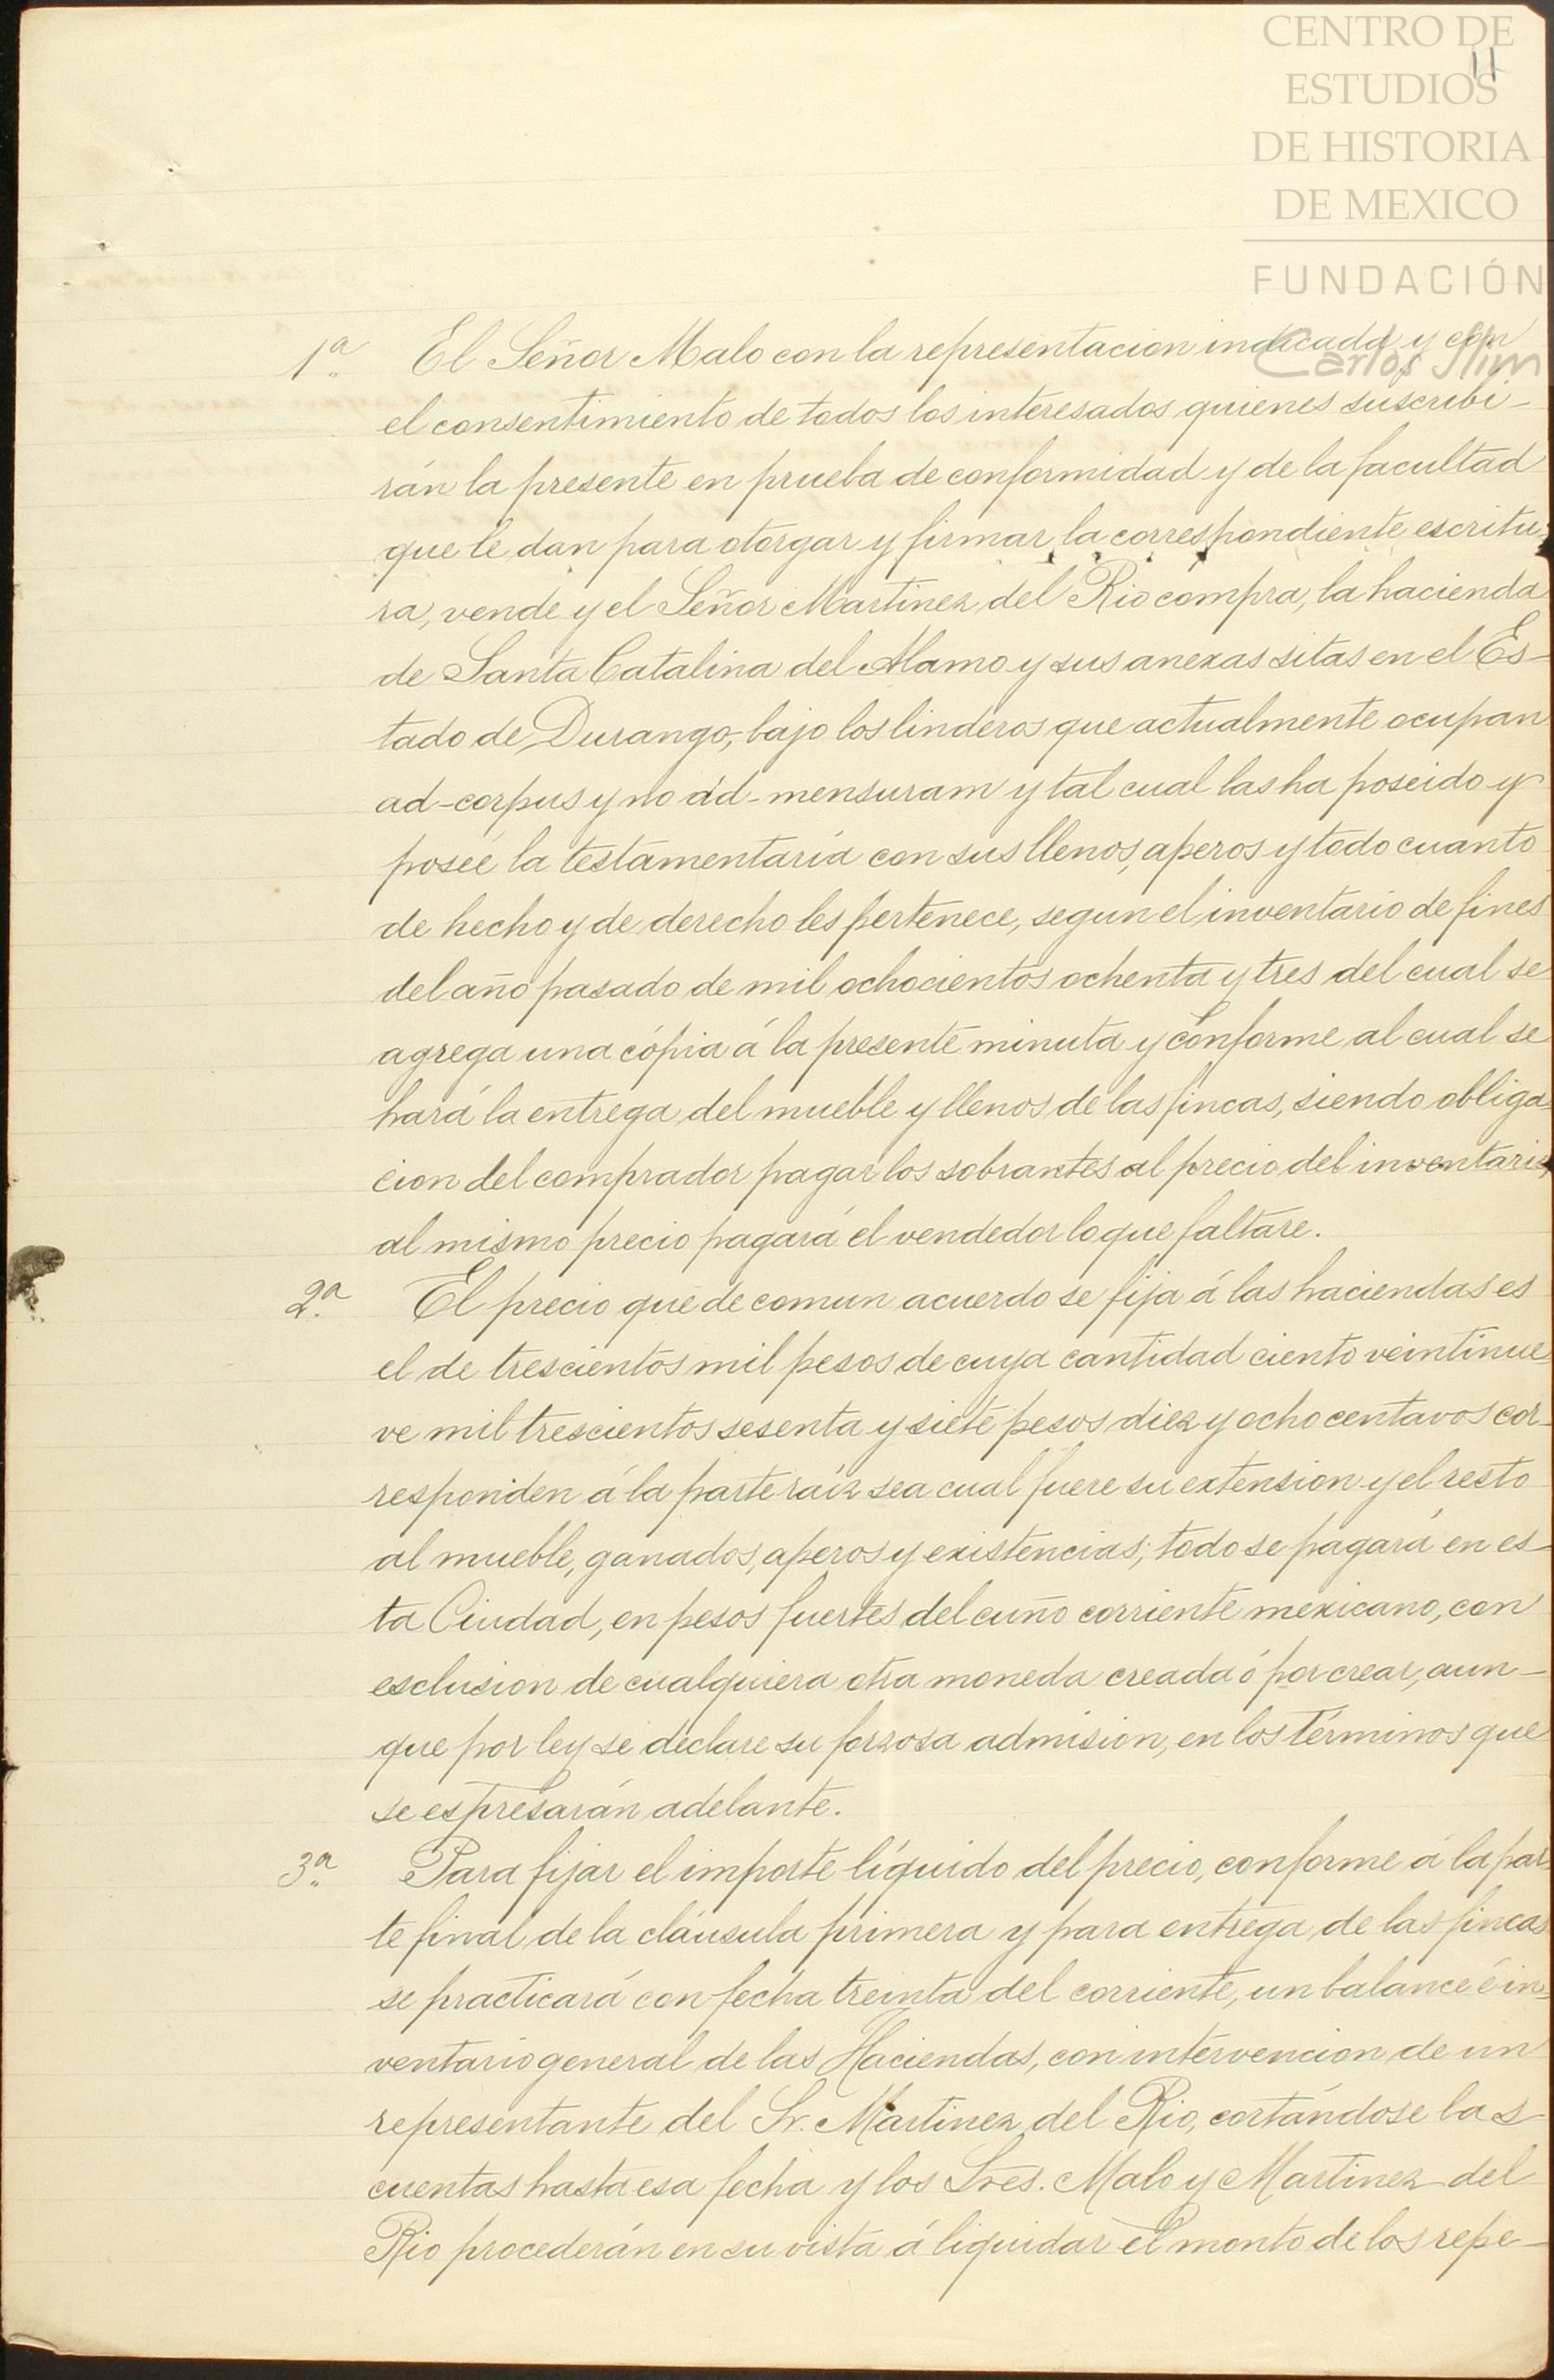 CENTRO DE
ESTUDIOS
DE HISTORIA
DE MEXICO
FUNDACIÓN
Carlos Slim
11
1ª. El Señor Malo con la representacion indicada y con
el consentimiento de todos los interesados quienes suscribi-
rán la presente en prueba de conformidad y de la facultad
que le dan para otorgar y firmar la correspondiente escritu-
ra, vende y el Señor Martinez del Rio compra, la hacienda
de Santa Catalina del Alamo y sus anexas sitas en el Es-
tado de Durango, bajo los linderos que actualmente ocupan
ad-corpus y no ad-mensuram y tal cual las ha poseido y
posée la testamentaría con sus llenos, aperos y todo cuanto
de hecho y de derecho les pertenece, segun el inventario de fines
del año pasado de mil ochocientos ochenta y tres del cual se
agrega una cópia á la presente minuta y conforme al cual se
hará la entrega del mueble y llenos de las fincas, siendo obliga-
cion del comprador pagar los sobrantes al precio del inventario,
al mismo precio pagará el vendedor lo que faltáre.
2ª. El precio que de comun acuerdo se fija á las haciendas es
el de trescientos mil pesos de cuya cantidad ciento veintinue-
ve mil trescientos sesenta y siete pesos diez y ocho centavos cor-
responden á la parte raíz sea cual fuere su extension y el resto
al mueble, ganados, aperos y existencias; todo se pagará en es-
ta Ciudad, en pesos fuertes del cuño corriente mexicano, con
esclusion de cualquiera otra moneda creada ó por crear, aun-
que por ley se declare su forzosa admision, en los términos que
se espresarán adelante.
3ª. Para fijar el importe líquido del precio, conforme á la par-
te final de la cláusula primera y para entrega de las fincas
se practicará con fecha treinta del corriente, un balance é in-
ventario general de las Haciendas, con intervencion de un
representante del Sr. Martinez del Rio, cortándose las
cuentas hasta esa fecha y los Sres. Malo y Martinez del
Rio procederán en su vista á liquidar el monto de los repe-